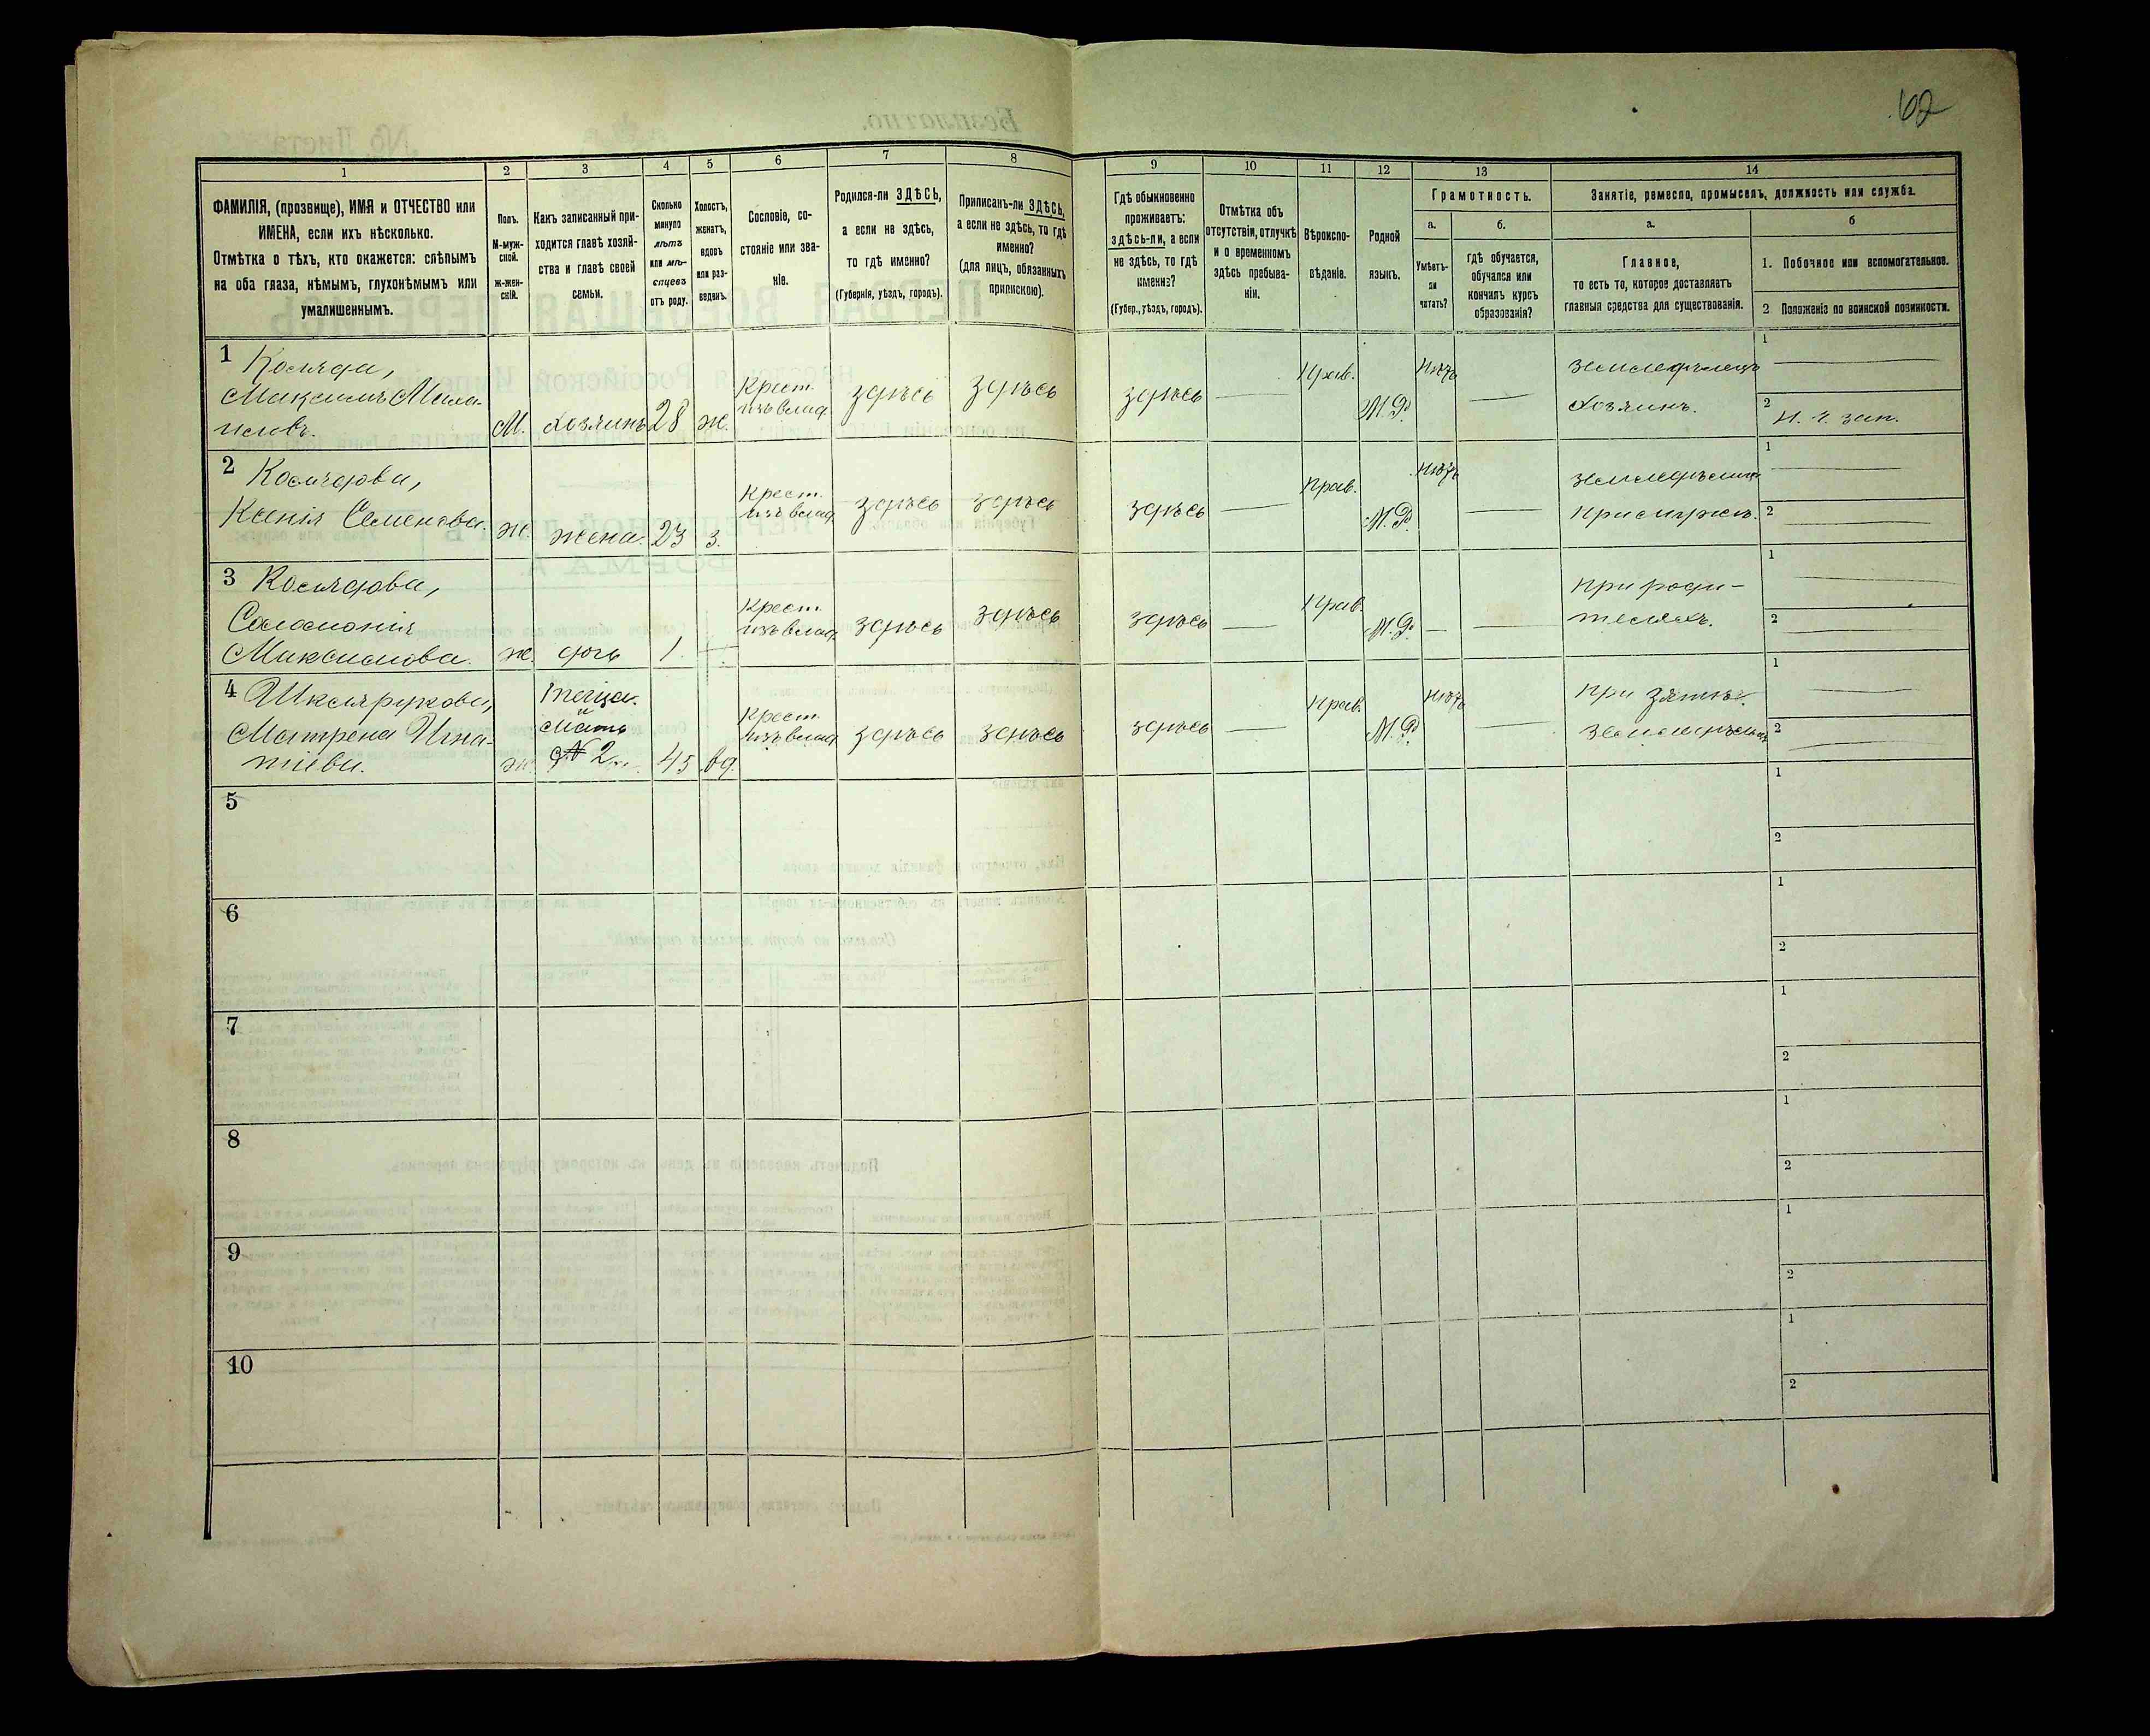 62
1 2 3 4 5 6 7 8 9 10 11 12 13 14
ФАМИЛІЯ, (прозвище), ИМЯ и ОТЧЕСТВО или
ИМЕНА, если ихъ нѣсколько.
Отмѣтка о тѣхъ, кто окажется: слѣпымъ
на оба глаза, нѣмымъ, глухонѣмымъ или
умалишеннымъ.
Полъ.
М-муж-
ской.
Ж-жен-
скій.
Какъ записанный при-
ходится главѣ хозяй-
ства и главѣ своей
семьи.
Сколько
минуло
лѣтъ
или мѣ-
сяцевъ
отъ роду.
Холостъ,
женатъ,
вдовъ
или раз-
веденъ.
Сословіе, со-
стояніе или зва-
ніе.
Родился-ли ЗДѢСЬ,
а если не здѣсь,
то гдѣ именно?
(Губернія, уѣздъ, городъ).
Приписанъ-ли ЗДѢСЬ,
а если не здѣсь, то гдѣ
именно?
(для лицъ, обязанныхъ
припискою).
Гдѣ обыкновенно
проживаетъ:
здѣсь-ли, а если
не здѣсь, то гдѣ
именно?
(Губер., уѣздъ, городъ).
Отмѣтка объ
отсутствіи, отлучкѣ
и о временномъ
здѣсь пребыва-
ніи.
Вѣроиспо-
вѣданіе.
Родной
языкъ.
Грамотность.
а.
Умѣетъ-
ли
читать?
б.
гдѣ обучается,
обучался или
кончилъ курсъ
образованія?
Занятіе, ремесло, промыселъ, должность или служба.
а.
Главное,
то есть то, которое доставляетъ
главныя средства для существованія.
б
1. Побочное или вспомогательное.
2 Положеніе по воинской повинности.
1 Коляда,
Максимъ Мала-
М. хозяинъ 28 ж.
Крест.
изъ влад.
здѣсь здѣсь здѣсь — Прав. М.Р. нѣтъ —
земледѣлецъ
хозяинъ.
1 —
2 н. ч. зап.
2 Колядова,
Ксенія Семенова.
ж. жена. 23 з.
Крест.
изъ влад.
здѣсь здѣсь здѣсь — Прав. М.Р. нѣтъ —
при мужѣ.
1 —
2 —
3 Колядова,
Саломонія
Максимова.
ж. дочь 1. —
Крест.
изъ влад.
здѣсь здѣсь здѣсь — Прав. М.Р. — —
при роди-
теляхъ.
1 —
2 —
4 Шклярукова,
Матрена Игна-
тіева.
ж.
теща.
и
мать
№ 2
45 вд.
Крест.
изъ влад.
здѣсь здѣсь здѣсь — Прав. М.Р. нѣтъ —
при зятѣ.
1 —
2 —
5
1
2
6
1
2
7
1
2
8
1
2
9
1
2
10
1
2